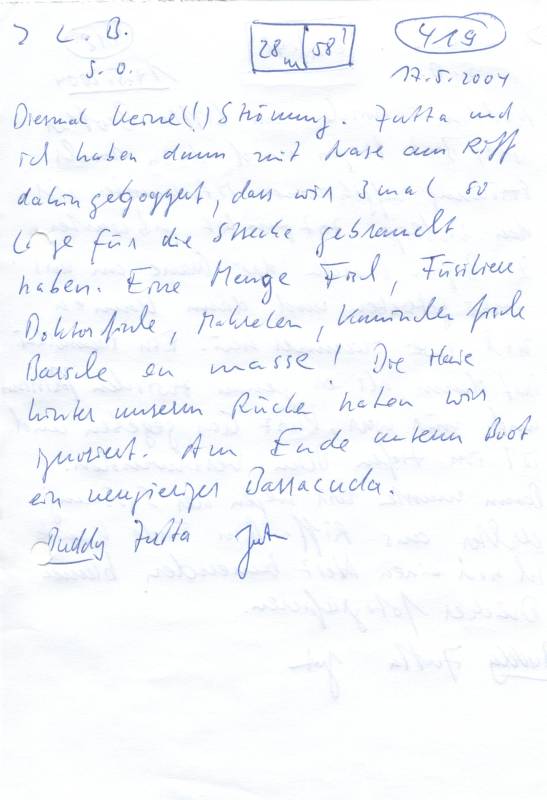 > L. B.
S. O.
28 m 58'
419
17.5.2004
Diesmal keine(!) Strömung. Jutta und
ich haben dann mit Nase am Riff
dahin getjoggert, dass wir 3 mal so
lange für die Strecke gebraucht
haben. Eine Menge Fisch, Füsiliere
Doktorfische, Makrelen, Kaninchenfische
Barsche en masse! Die Haie
hinter unserem Rücken haben wir
ignoriert. Am Ende unterm Boot
ein neugieriger Barracuda.
Buddy Jutta